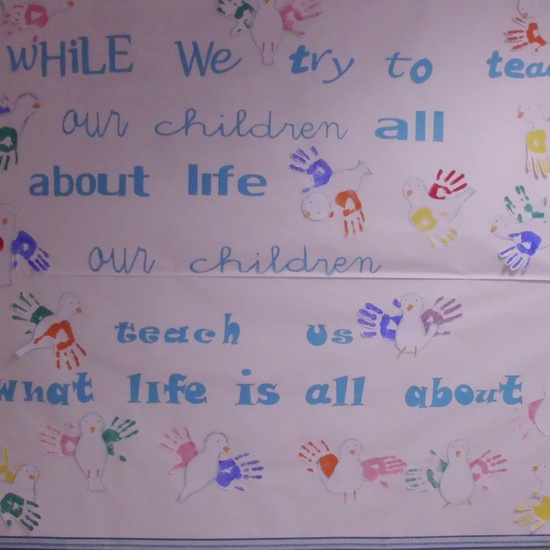 WHiLE We try to teac
our children all
about life
our children
teach us
what life is all about